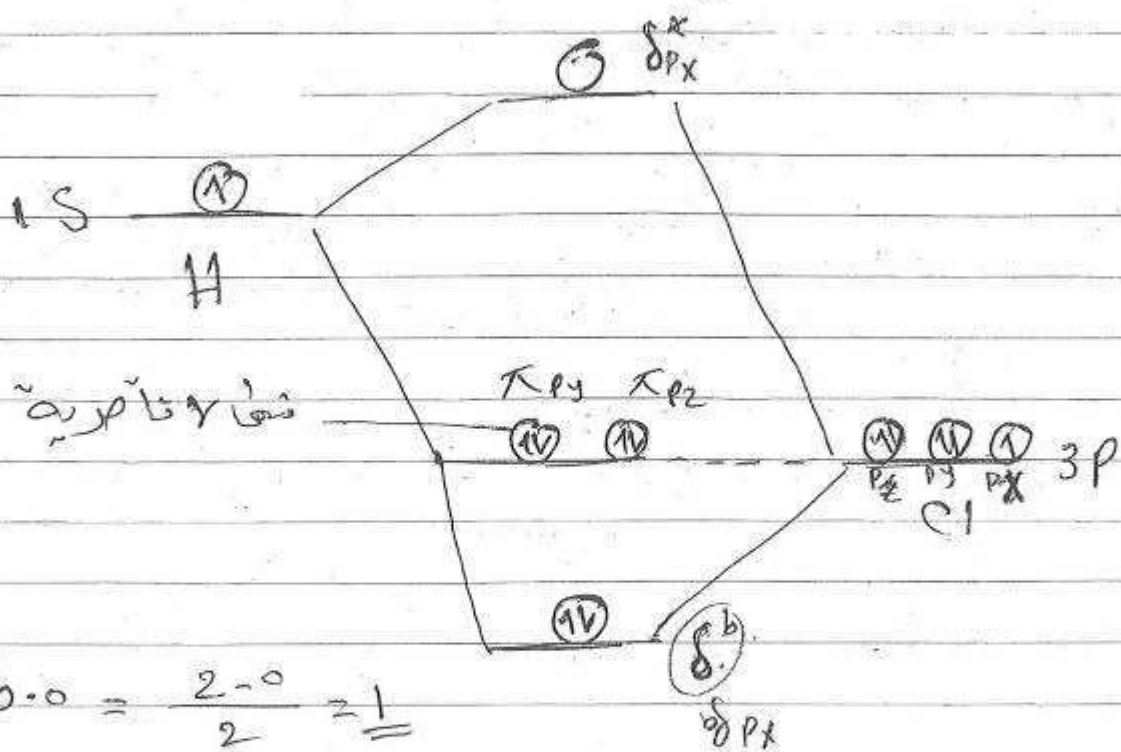 δ*px
1S
H
πpy πpz
pz py px 3P
Cl
δb
δpx
b.o = 2-0 / 2 = 1